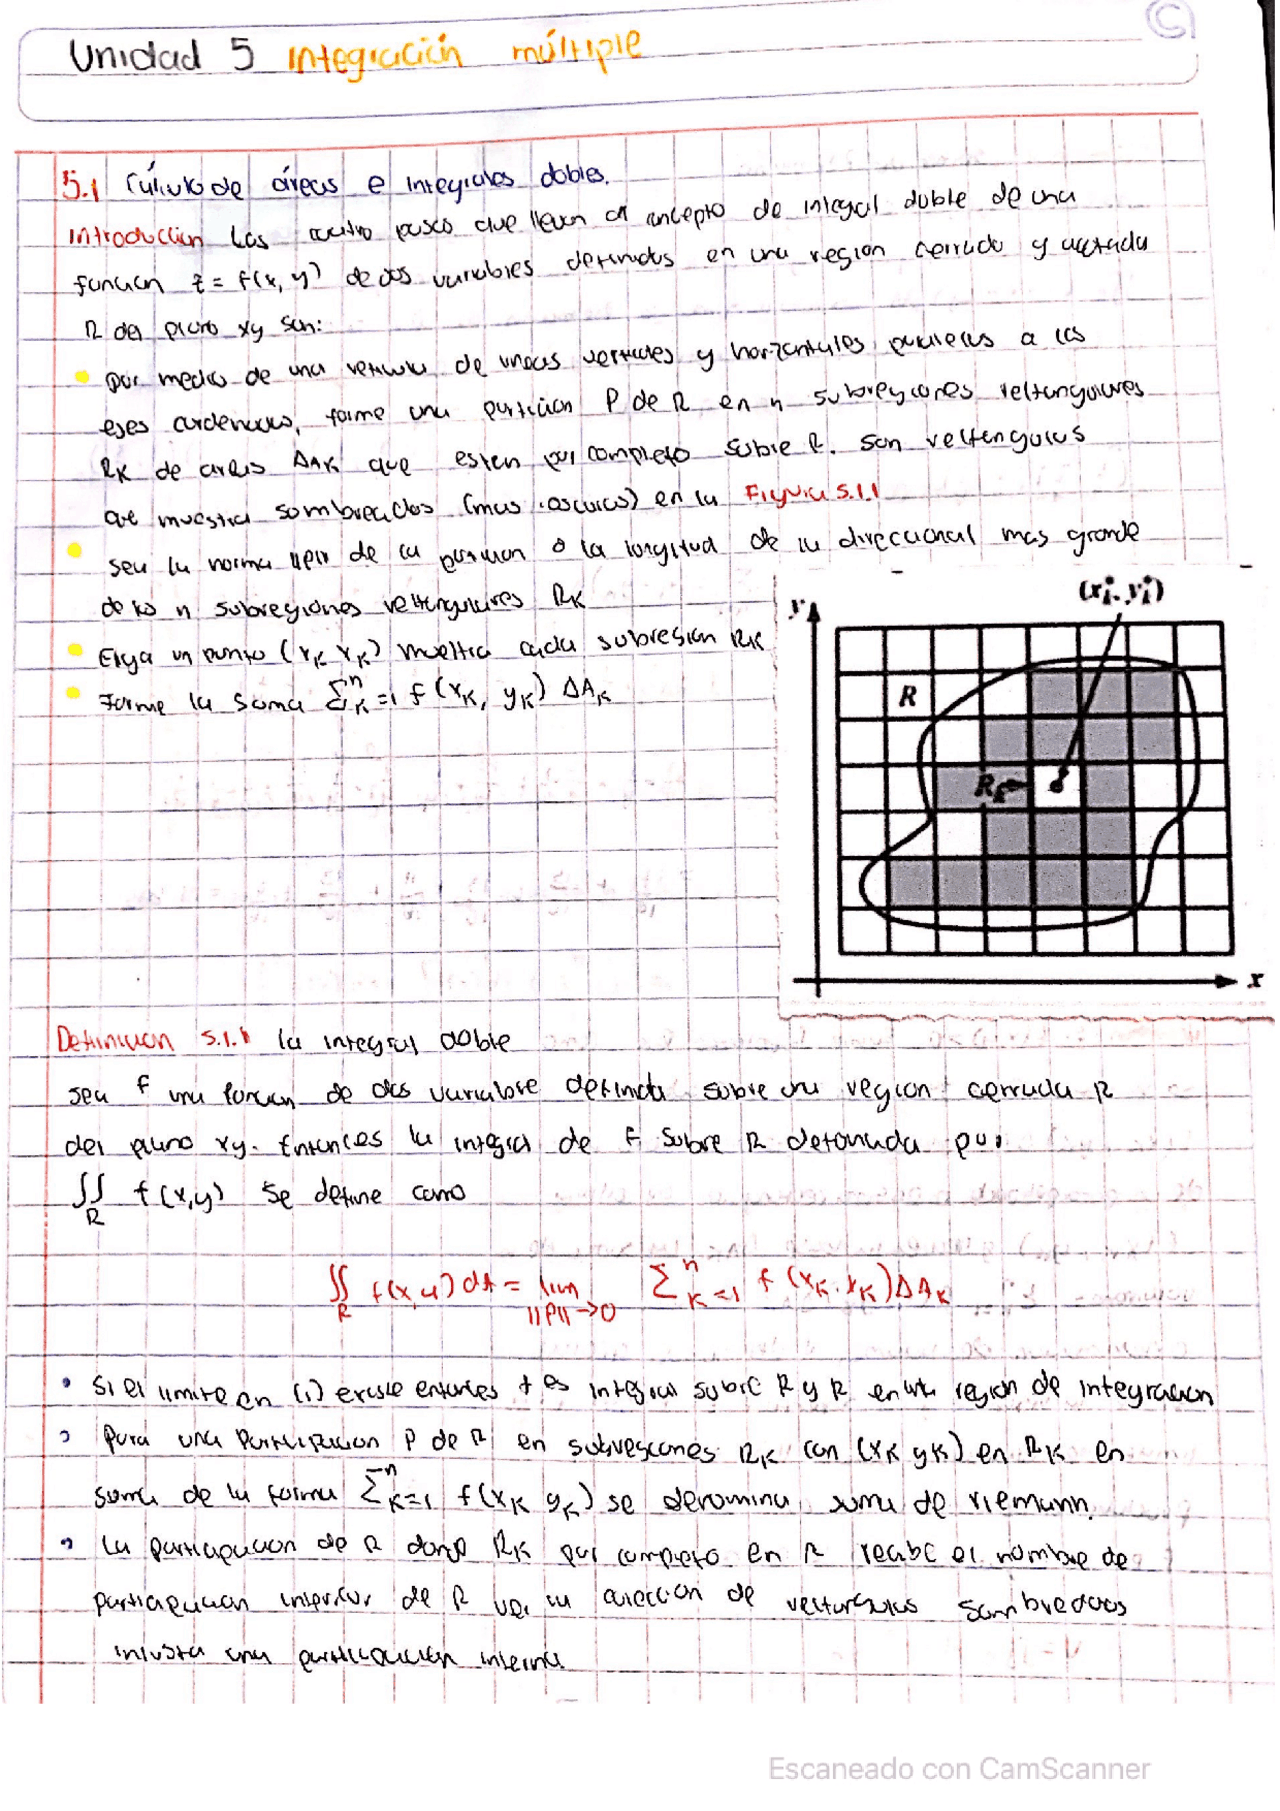 Unidad 5 integración múltiple
5.1 Cálculo de áreas e integrales dobles.
introducción Los cuatro pasos que llevan al concepto de integral doble de una
función z = f(x, y) de dos variables definidas en una region cerrada y acotada
R del plano xy son:
por medio de una de lineas verticales y horizontales paralelas a los
ejes cordenados, forme una partición P de R en n subregiones rectangulares
RK de areas ΔAK que esten por completo sobre R. son rectangulos
que muestra sombreados (mas oscuros) en la Figura 5.1.1
sea la norma de la particion o la longitud de la direccional mas grande
de los n subregiones rectangulares RK
Elija un punto (xK yK) cada subresion RK
Forme la suma Σⁿ K=1 f(xK, yK) ΔAK
(x*k, y*k)
y
R
Rk
x
Definicion 5.1.1 la integral doble
sea f una funcion de dos variables definida sobre una region cerrada R
del plano xy. Entonces la integral de F sobre R detonada por
∬R f(x,y) se define como
∬R f(x,y) dA = lim ||P||→0 Σⁿ K=1 f(xK, yK) ΔAK
Si el limite en (1) existe entonces f es integral sobre R y R region de integracion
para una P de R en subregiones RK con (xK yK) en RK en
suma de la forma Σⁿ K=1 f(xK yK) se denomina suma de riemann.
La de R donde RK por completo en R recibe el nombre de
interior de R la colección de rectangulos sombreados
una interna
Escaneado con CamScanner